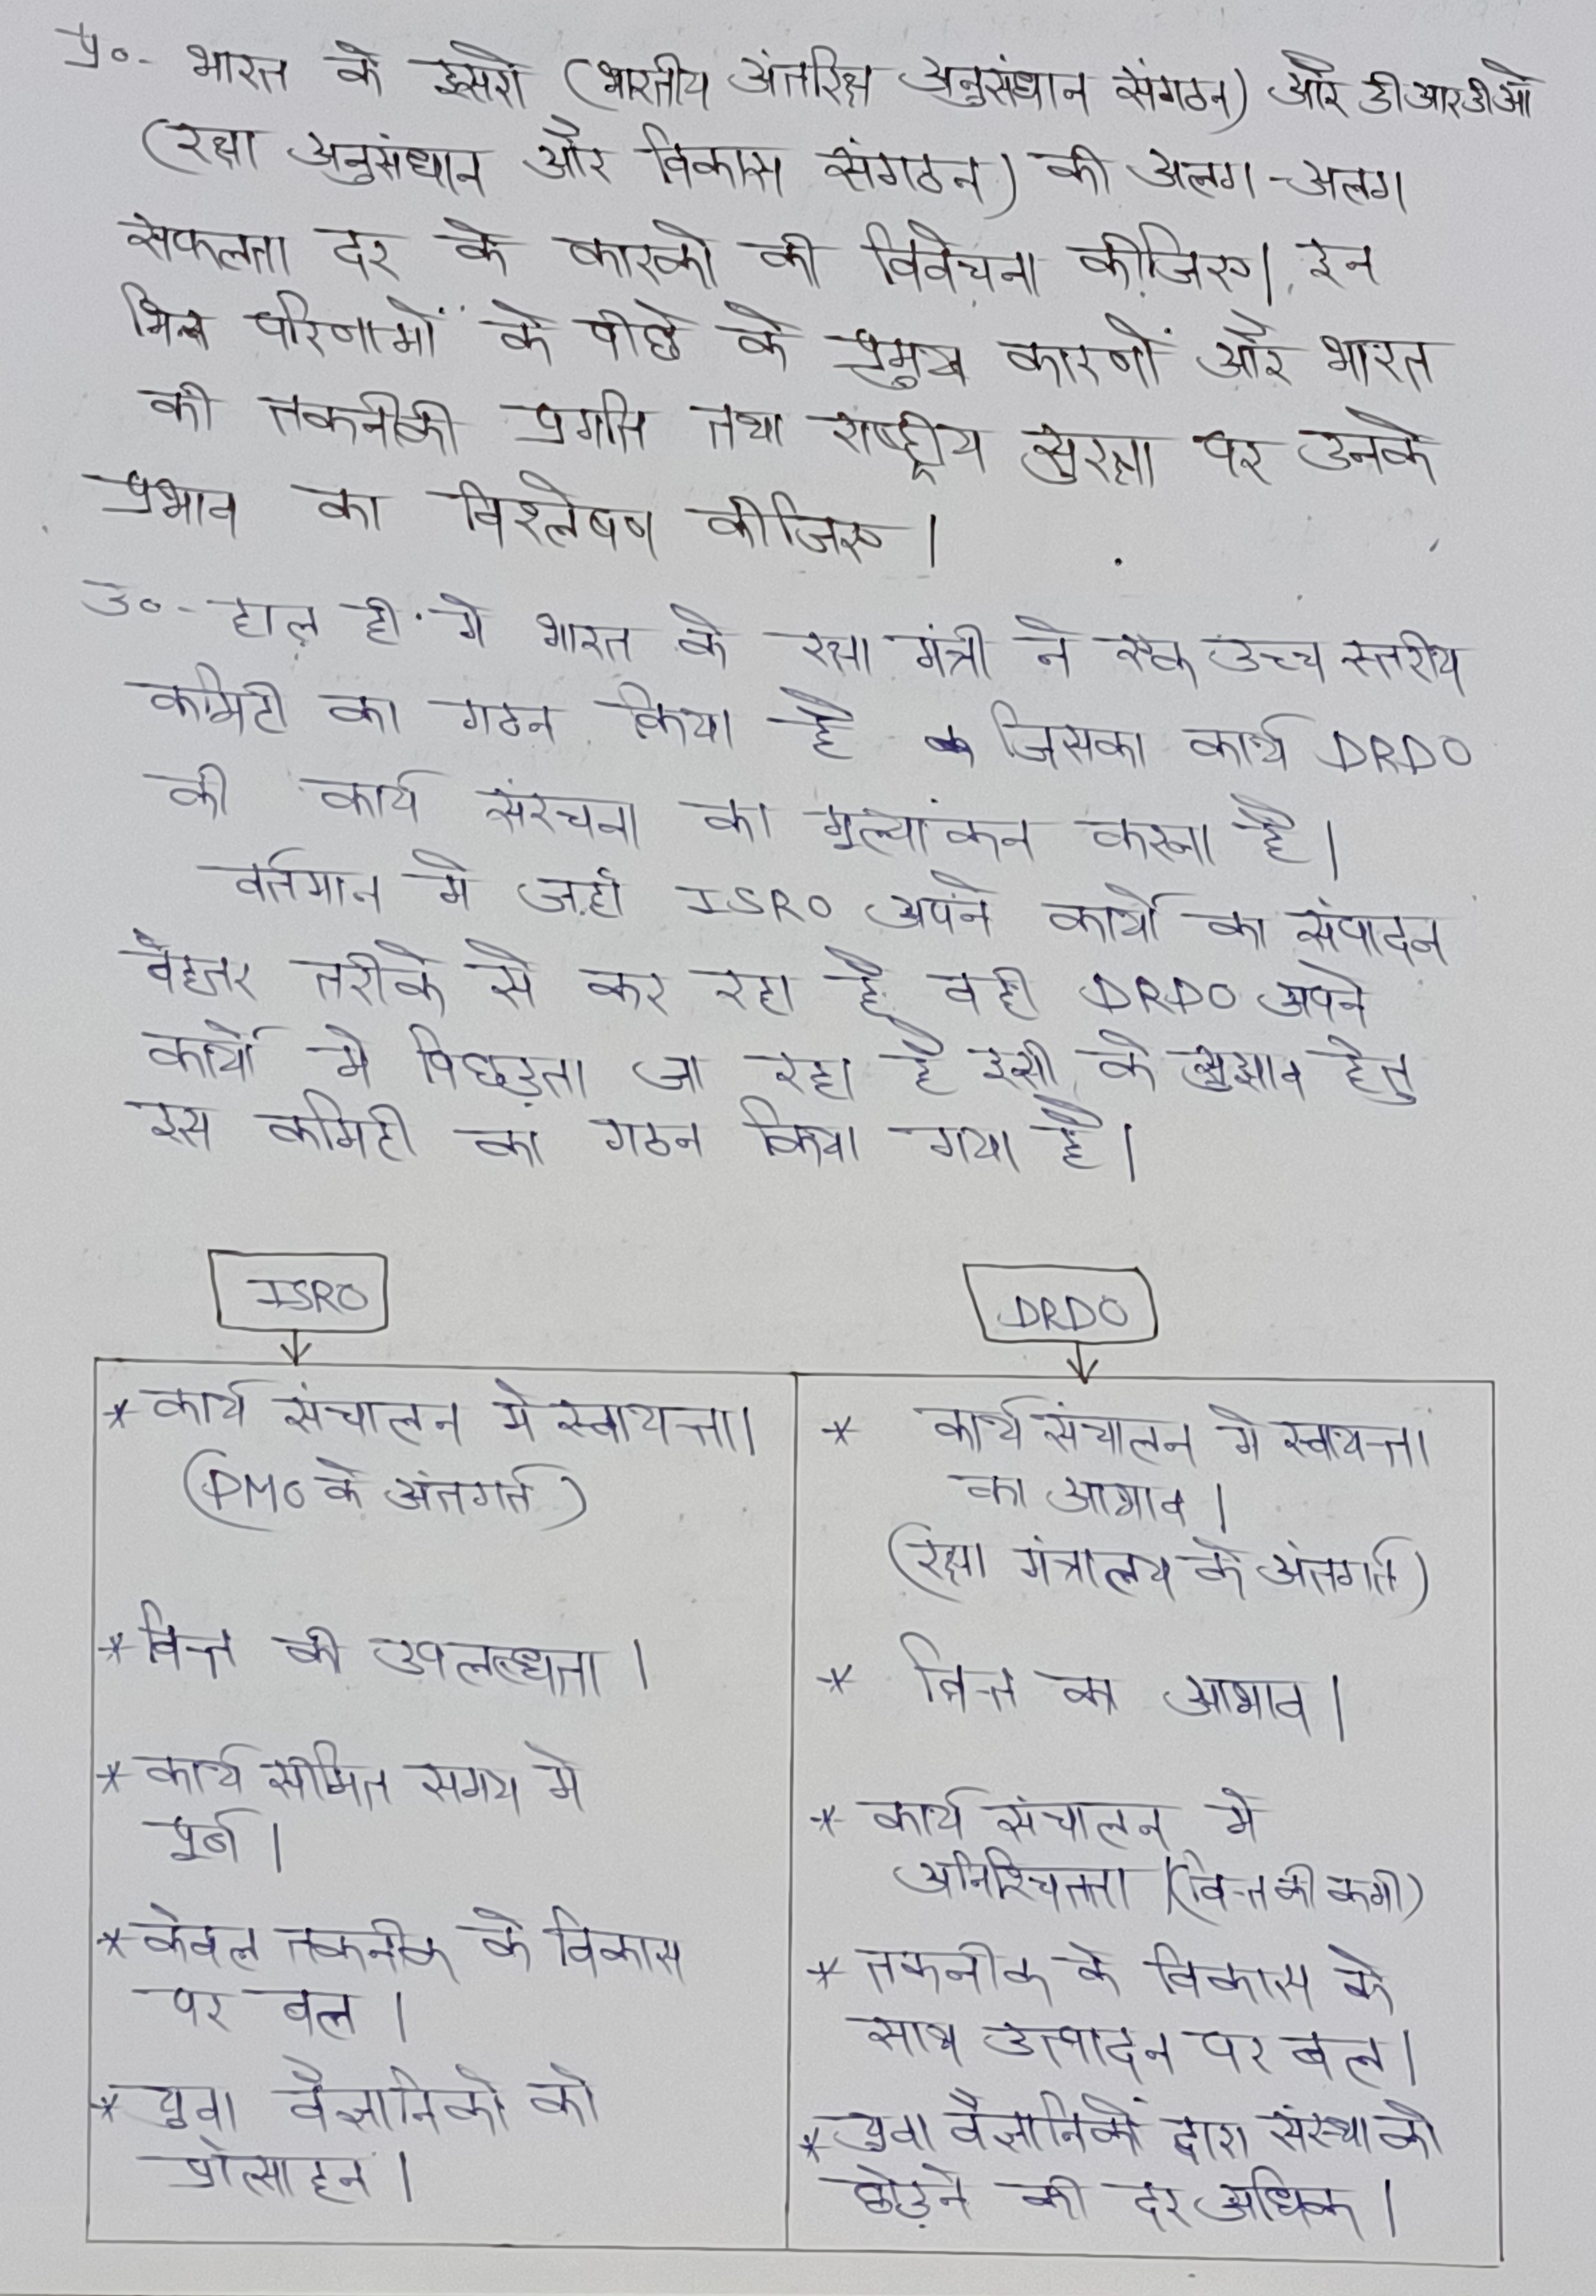 प्र०- भारत के इसरो (भारतीय अंतरिक्ष अनुसंधान संगठन) और डीआरडीओ
(रक्षा अनुसंधान और विकास संगठन) की अलग-अलग
सफलता दर के कारको की विवेचना कीजिए। इन
भिन्न परिणामों के पीछे के प्रमुख कारणों और भारत
की तकनीकी प्रगति तथा राष्ट्रीय सुरक्षा पर उनके
प्रभाव का विश्लेषण कीजिए।
उ०- हाल ही मे भारत के रक्षा मंत्री ने एक उच्च स्तरीय
कमिटी का गठन किया है जिसका कार्य DRDO
की कार्य संरचना का मूल्यांकन करना है।
वर्तमान मे जहाँ ISRO अपने कार्यो का संपादन
बेहतर तरीके से कर रहा है वही DRDO अपने
कार्यो मे पिछड़ता जा रहा है इसी के सुझाव हेतु
इस कमिटी का गठन किया गया है।
ISRO
* कार्य संचालन मे स्वायत्ता।
(PMO के अंतगर्त)
* वित्त की उपलब्धता।
* कार्य सीमित समय मे
पूर्ण।
* केवल तकनीक के विकास
पर बल।
* युवा वैज्ञानिको को
प्रोत्साहन।
DRDO
* कार्य संचालन मे स्वायत्ता
का आभाव।
(रक्षा मंत्रालय के अंतगर्त)
* वित्त का आभाव।
* कार्य संचालन मे
अनिश्चितता (वित्त की कमी)
* तकनीक के विकास के
साथ उत्पादन पर बल।
* युवा वैज्ञानिकों द्वारा संस्था को
छोड़ने की दर अधिक।